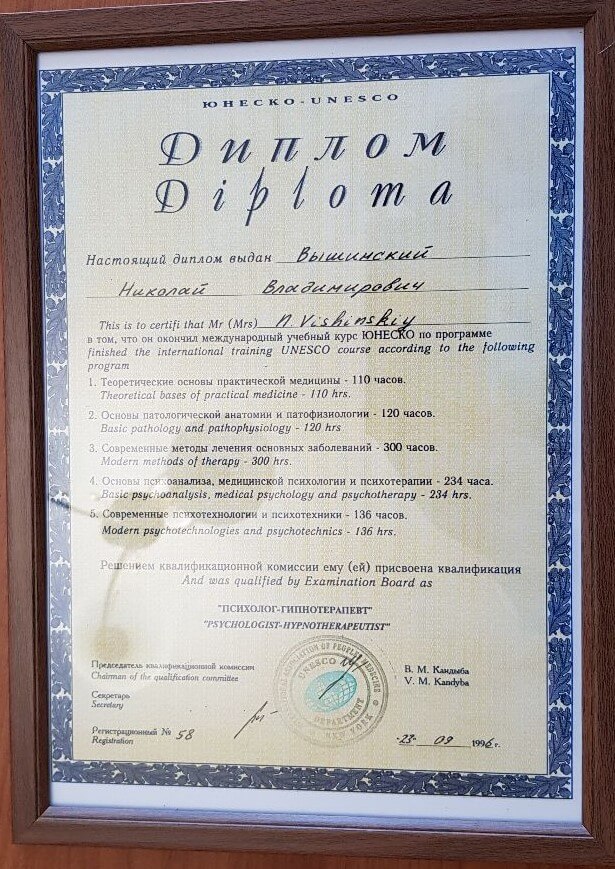 ЮНЕСКО-UNESCO
Диплом
Diploma
Настоящий диплом выдан Вышинский
Николай Владимирович
This is to certifi that Mr (Mrs) N Vishinskiy
в том, что он окончил международный учебный курс ЮНЕСКО по программе
finished the international training UNESCO course according to the following
program
1. Теоретические основы практической медицины - 110 часов.
Theoretical bases of practical medicine - 110 hrs.
2. Основы патологической анатомии и патофизиологии - 120 часов.
Basic pathology and pathophysiology - 120 hrs
3. Современные методы лечения основных заболеваний - 300 часов.
Modern methods of therapy - 300 hrs.
4. Основы психоанализа, медицинской психологии и психотерапии - 234 часа.
Basic psychoanalysis, medical psychology and psychotherapy - 234 hrs.
5. Современные психотехнологии и психотехники - 136 часов.
Modern psychotechnologies and psychotechnics - 136 hrs.
Решением квалификационной комиссии ему (ей) присвоена квалификация
And was qualified by Examination Board as
"ПСИХОЛОГ-ГИПНОТЕРАПЕВТ"
"PSYCHOLOGIST-HYPNOTHERAPEUTIST"
Председатель квалификационной комиссии
Chairman of the qualification committee
В. М. Кандыба
V. M. Kandyba
Секретарь
Secretary
ASSOCIATION OF PEOPLE'S
UNESCO
DEPARTMENT
NEW YORK
Регистрационный № 58
Registration
23 09 1996 г.